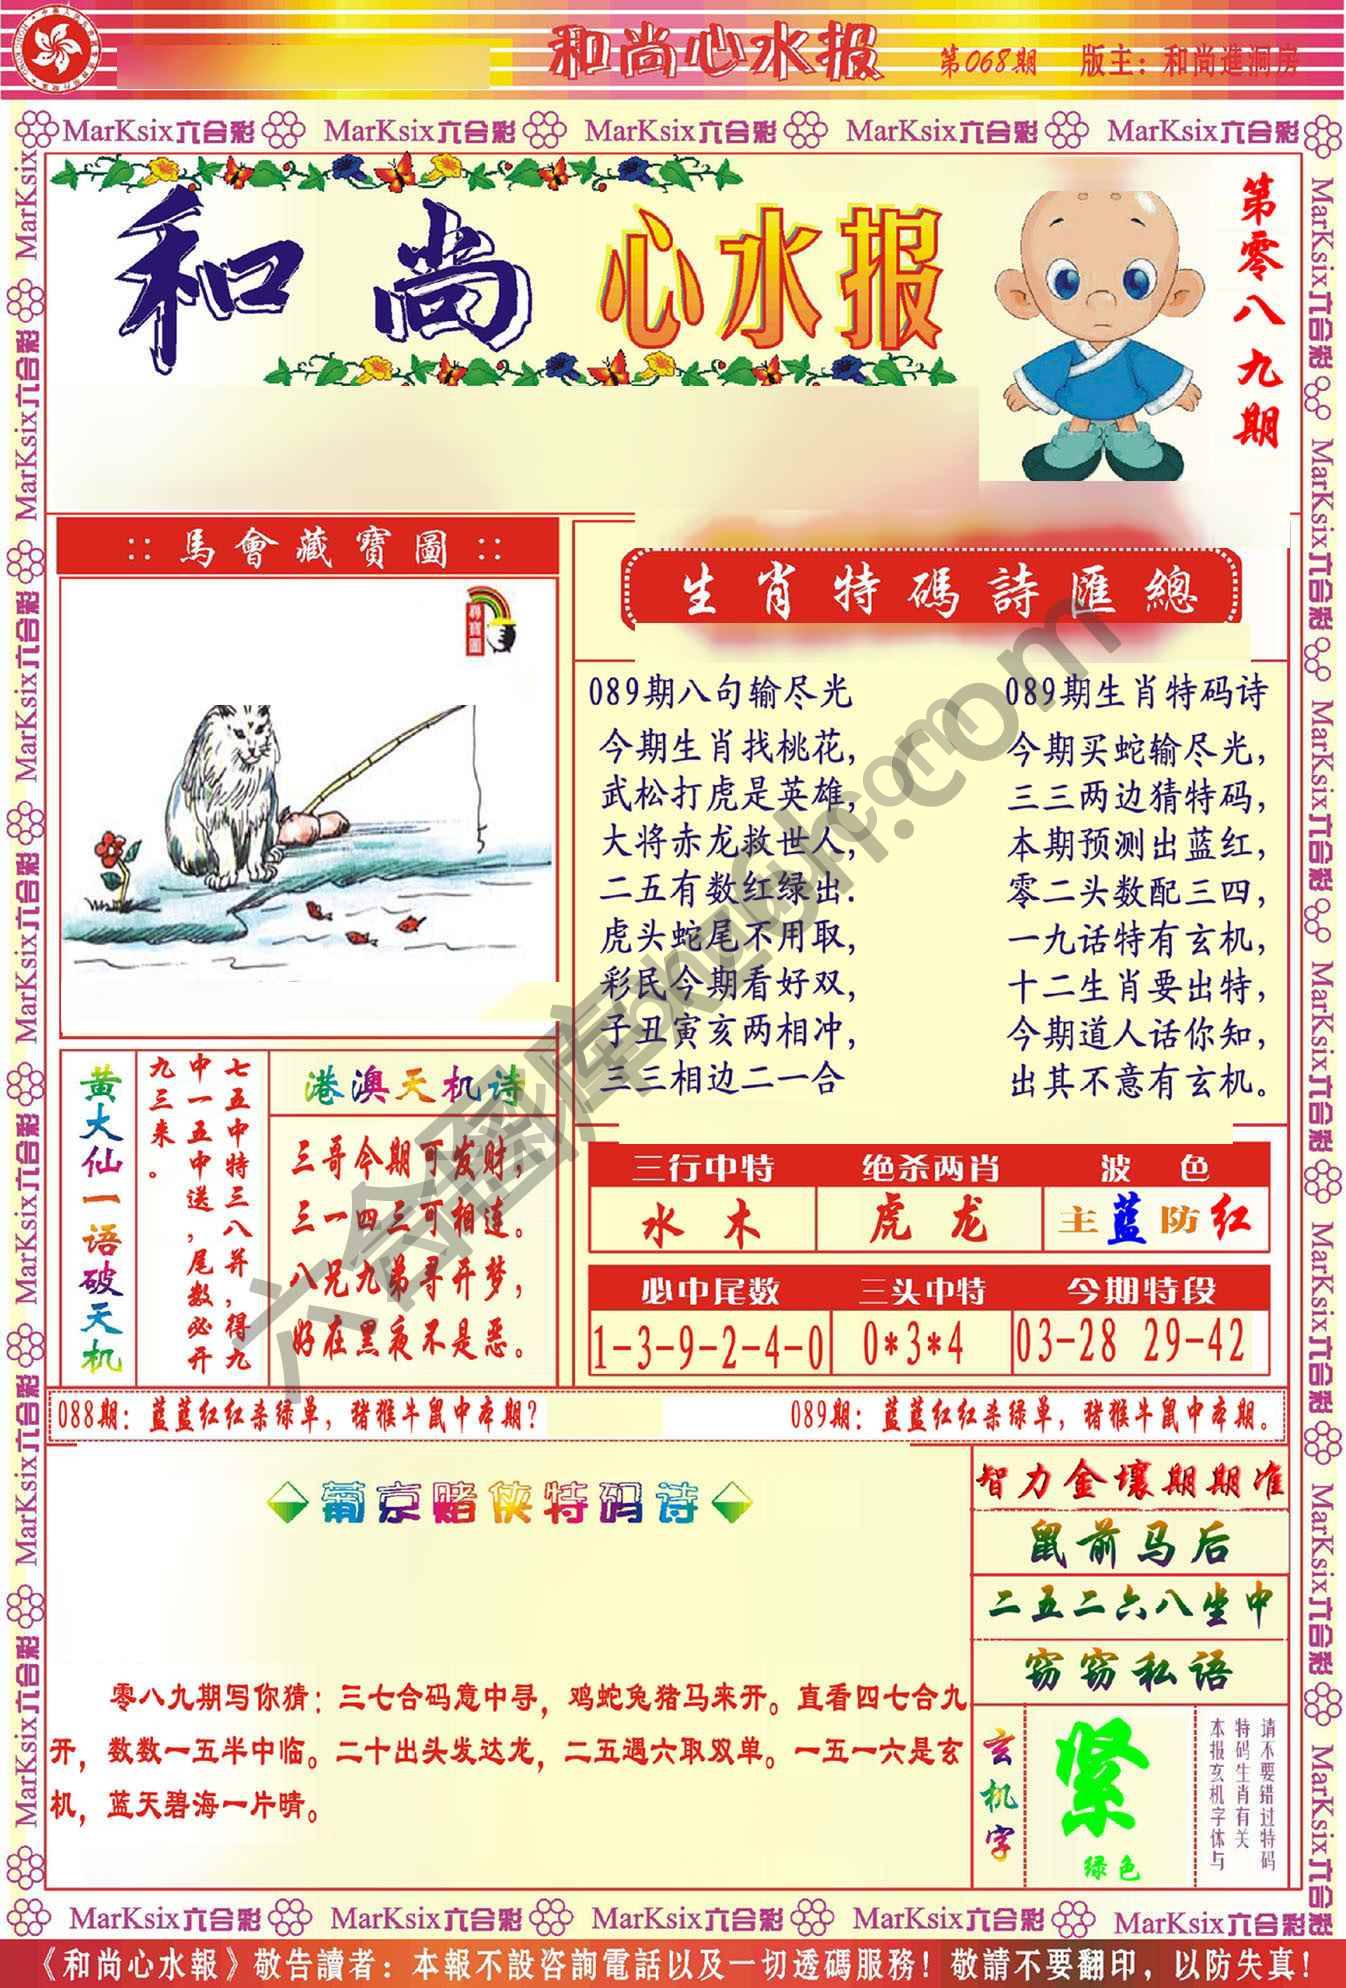 和尚心水报
第068期 版主：和尚進洞房
MarKsix六合彩 MarKsix六合彩 MarKsix六合彩 MarKsix六合彩 MarKsix六合彩
和尚心水报
第零八九期
::馬會藏寶圖::
尋寶圖
生肖特碼詩匯總
089期八句输尽光
今期生肖找桃花，
武松打虎是英雄，
大将赤龙救世人，
二五有数红绿出.
虎头蛇尾不用取，
彩民今期看好双，
子丑寅亥两相冲，
三三相边二一合
089期生肖特码诗
今期买蛇输尽光，
三三两边猜特码，
本期预测出蓝红，
零二头数配三四，
一九话特有玄机，
十二生肖要出特，
今期道人话你知，
出其不意有玄机。
黄大仙一语破天机
七五中特三八并，得九
中一五中送，尾数必开
九三来。
港澳天机诗
三哥今期可发财，
三一四三可相连。
八兄九弟寻开梦，
好在黑夜不是恶。
三行中特 绝杀两肖 波色
水木 虎龙 主蓝防红
必中尾数 三头中特 今期特段
1-3-9-2-4-0 0*3*4 03-28 29-42
088期：蓝蓝红红杀绿单，猪猴牛鼠中本期？
089期：蓝蓝红红杀绿单，猪猴牛鼠中本期。
葡京赌侠特码诗
零八九期写你猜：三七合码意中寻，鸡蛇兔猪马来开。直看四七合九
开，数数一五半中临。二十出头发达龙，二五遇六取双单。一五一六是玄
机，蓝天碧海一片晴。
智力金壤期期准
鼠前马后
二五二六八坐中
窃窃私语
玄机字
紧
绿色
请不要错过特码
特码生肖有关
本报玄机字体与
MarKsix六合彩 MarKsix六合彩 MarKsix六合彩 MarKsix六合彩 MarKsix六合彩
《和尚心水報》敬告讀者：本報不設咨詢電話以及一切透碼服務！敬請不要翻印，以防失真！